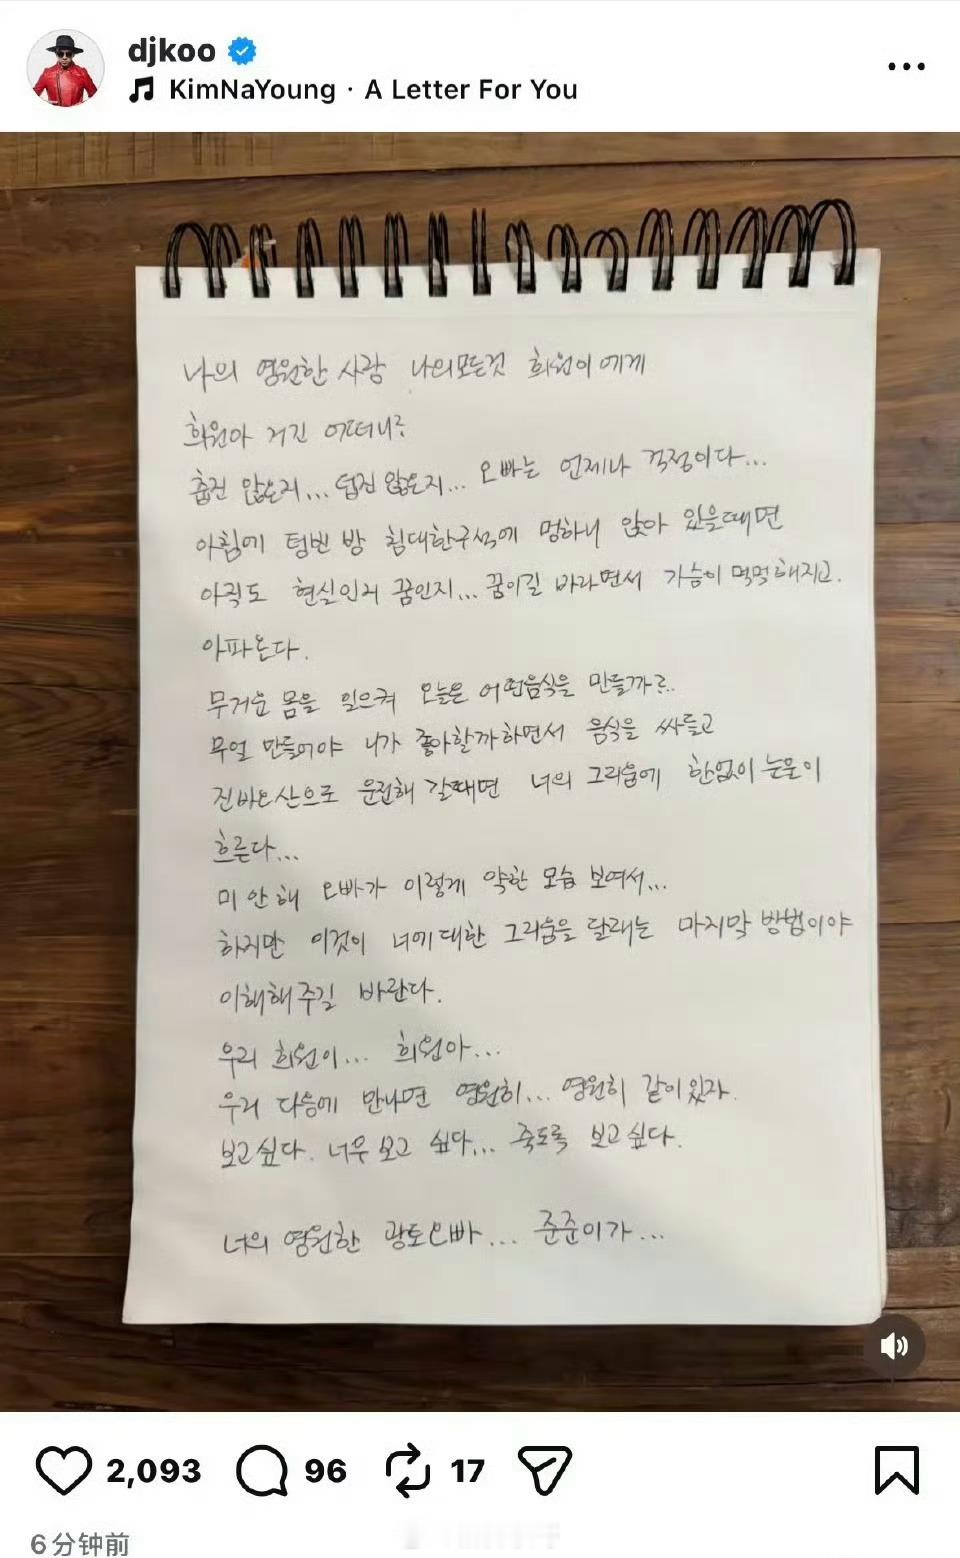 djkoo
KimNaYoung · A Letter For You
나의 영원한 사랑 나의모든것 희원이에게
희원아 거긴 어떠니?
춥진 않은지... 덥진 않은지... 오빠는 언제나 걱정이다...
아침에 텅빈 방 침대한구석에 멍하니 앉아 있을때면
아직도 현실인지 꿈인지... 꿈이길 바라면서 가슴이 먹먹해지고.
아파온다.
무거운 몸을 일으켜 오늘은 어떤음식을 만들까?..
무얼 만들어야 니가 좋아할까하면서 음식을 싸들고
진바오산으로 운전해 갈때면 너의 그리움에 한없이 눈물이
흐른다...
미안해 오빠가 이렇게 약한 모습 보여서...
하지만 이것이 너에대한 그리움을 달래는 마지막 방법이야
이해해주길 바란다.
우리 희원이... 희원아...
우리 다음에 만나면 영원히... 영원히 같이있자.
보고싶다. 너무 보고 싶다... 죽도록 보고싶다.
너의 영원한 광토오빠... 준준이가...
2,093 96 17
6分钟前